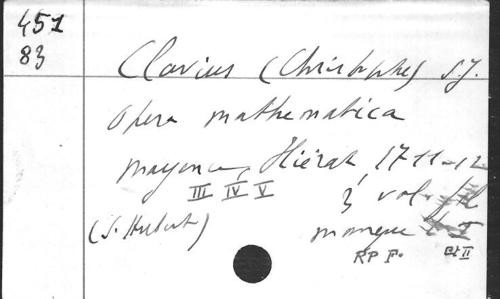 451
83
Clavius (Christophe) S.J.
Opera mathematica
mayence, Hiérat, 1711-12
III IV V 3 vol. fol
(S. Hubert) manque t I
RP P. et II